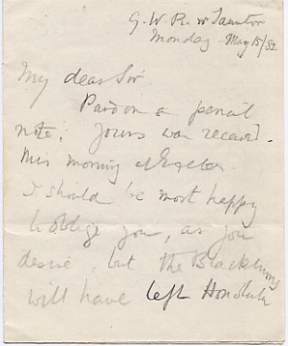 G. W. R. nr Taunton
Monday May 15/82
My dear Sir
Pardon a pencil
note. Yours was receivd.
this morning at Exeter
I should be most happy
to oblige you, as you
desire, but the Blackburns
will have left Honolulu